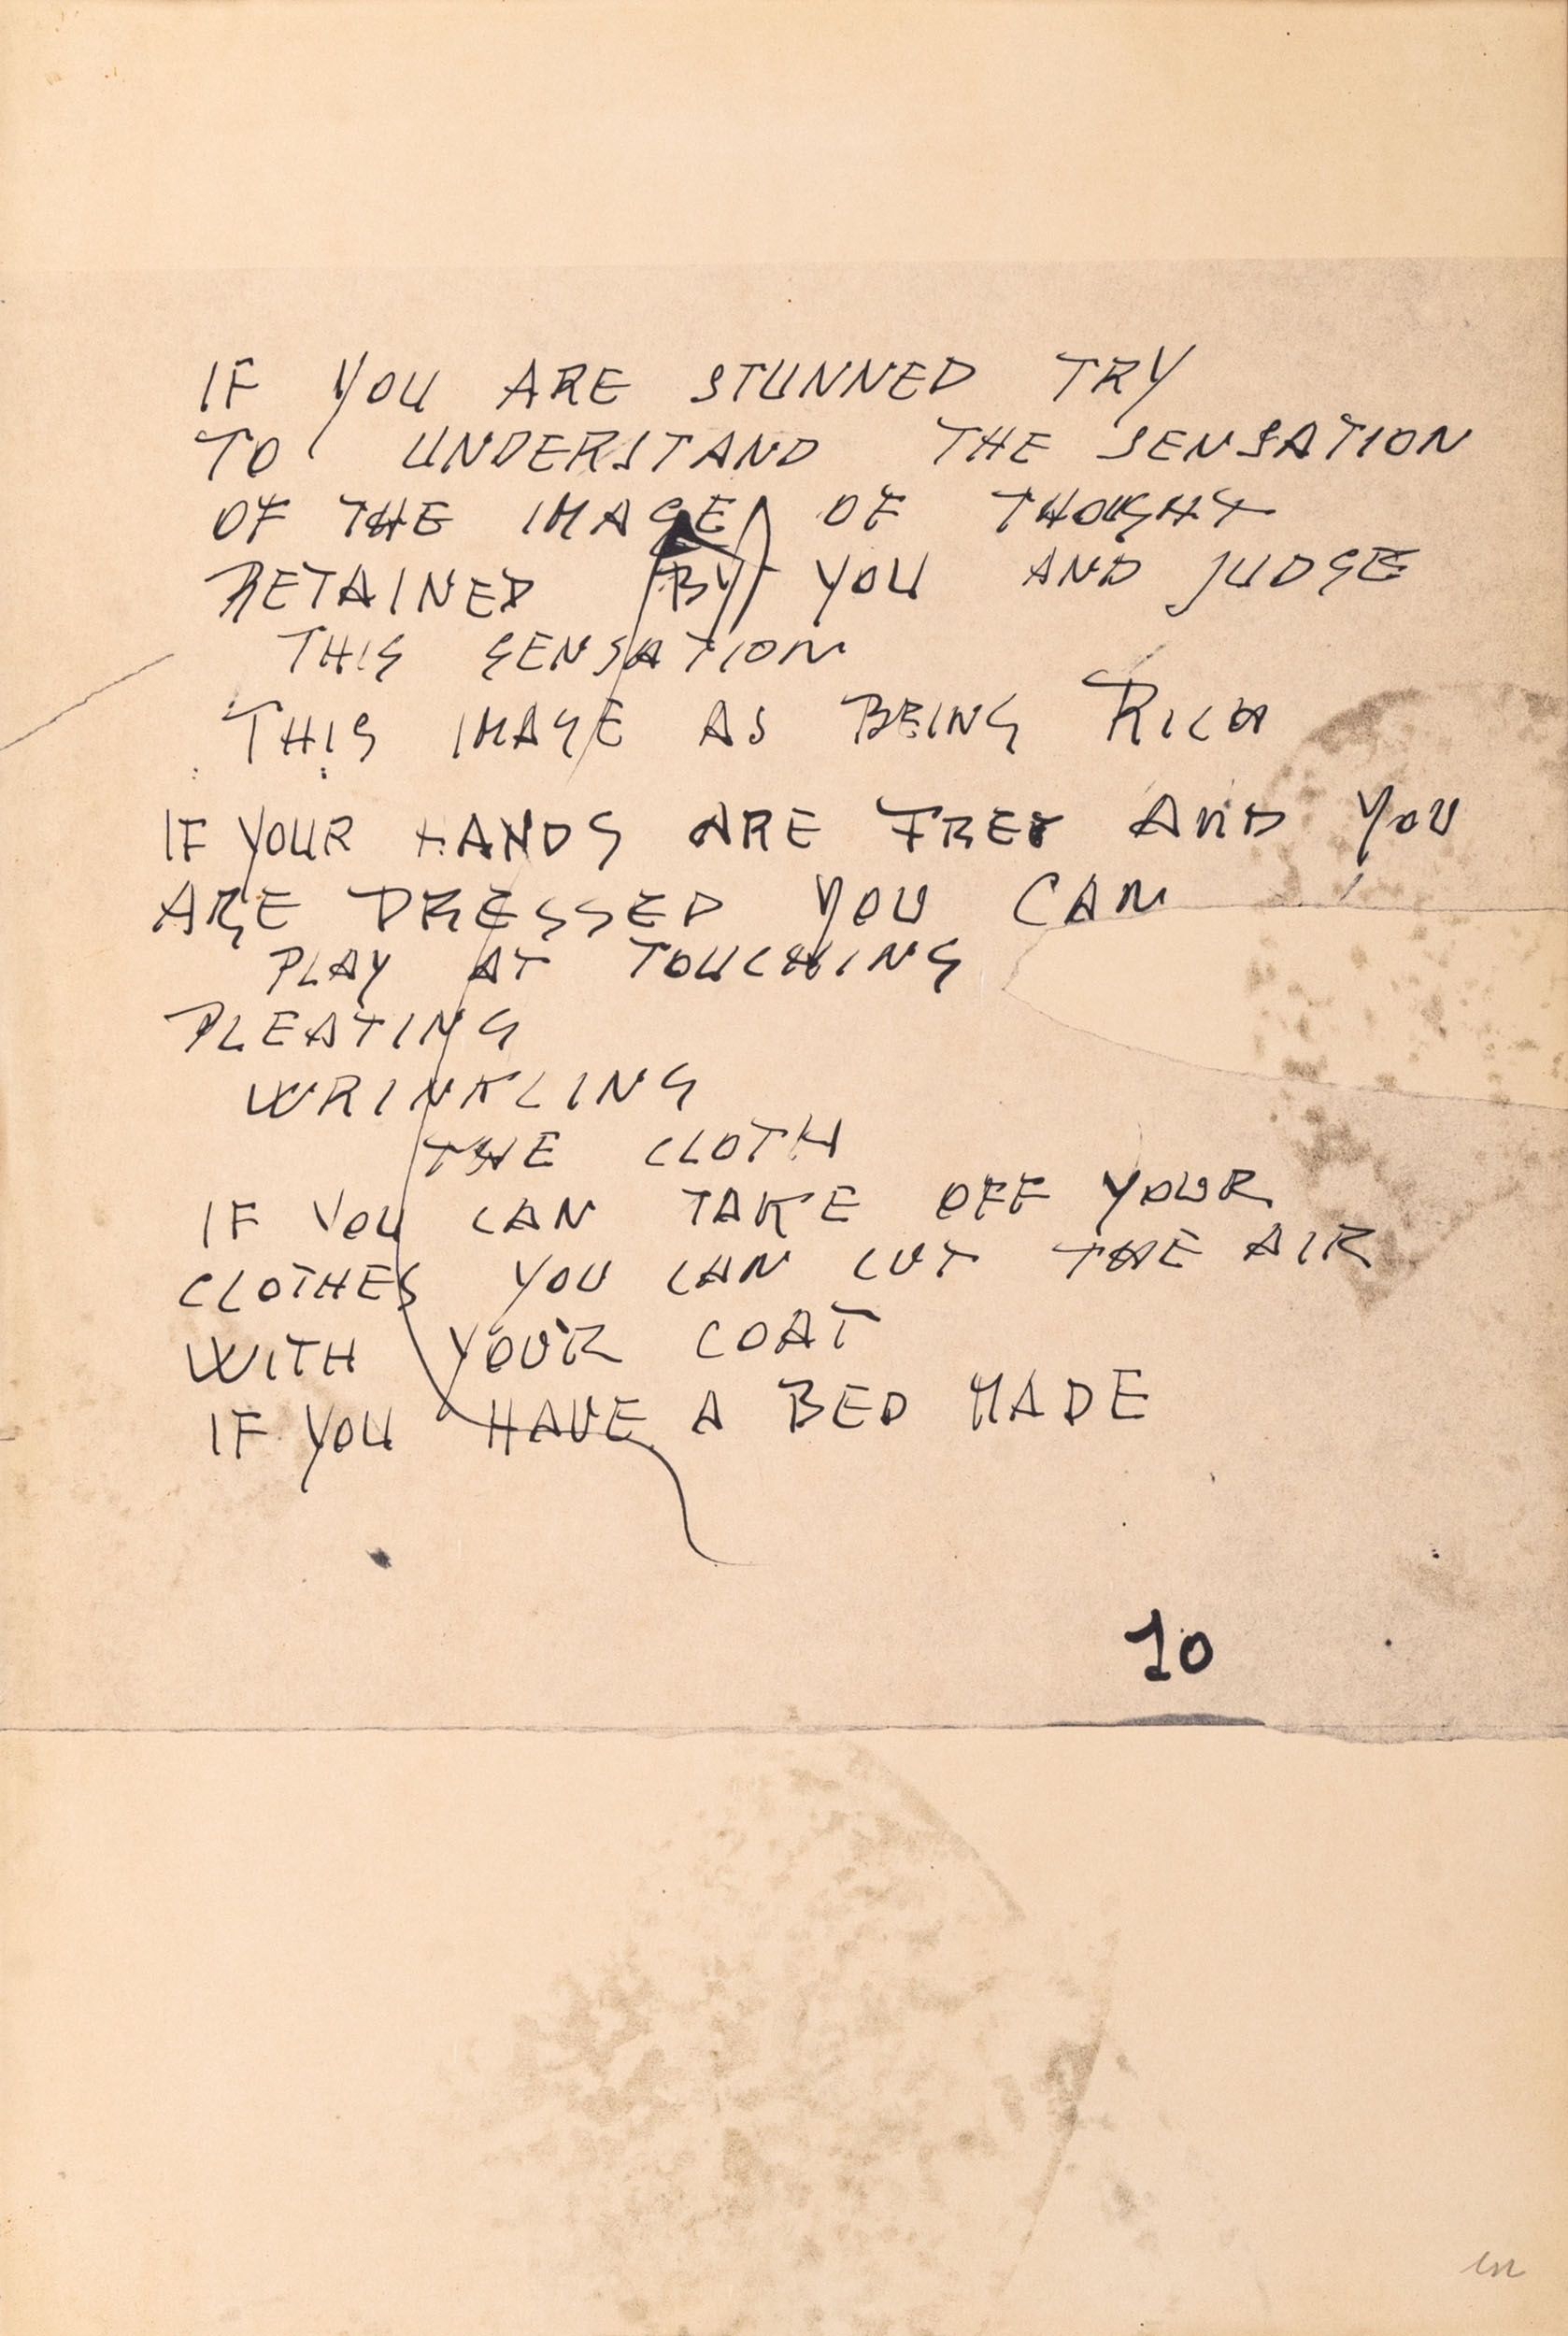 IF YOU ARE STUNNED TRY
TO UNDERSTAND THE SENSATION
OF THE IMAGE OF THOUGHT
RETAINED BY YOU AND JUDGE
THIS SENSATION
THIS IMAGE AS BEING RICH
IF YOUR HANDS ARE FREE AND YOU
ARE DRESSED YOU CAN
PLAY AT TOUCHING
PLEATING
WRINKLING
THE CLOTH
IF YOU CAN TAKE OFF YOUR
CLOTHES YOU CAN CUT THE AIR
WITH YOUR COAT
IF YOU HAVE A BED MADE
10